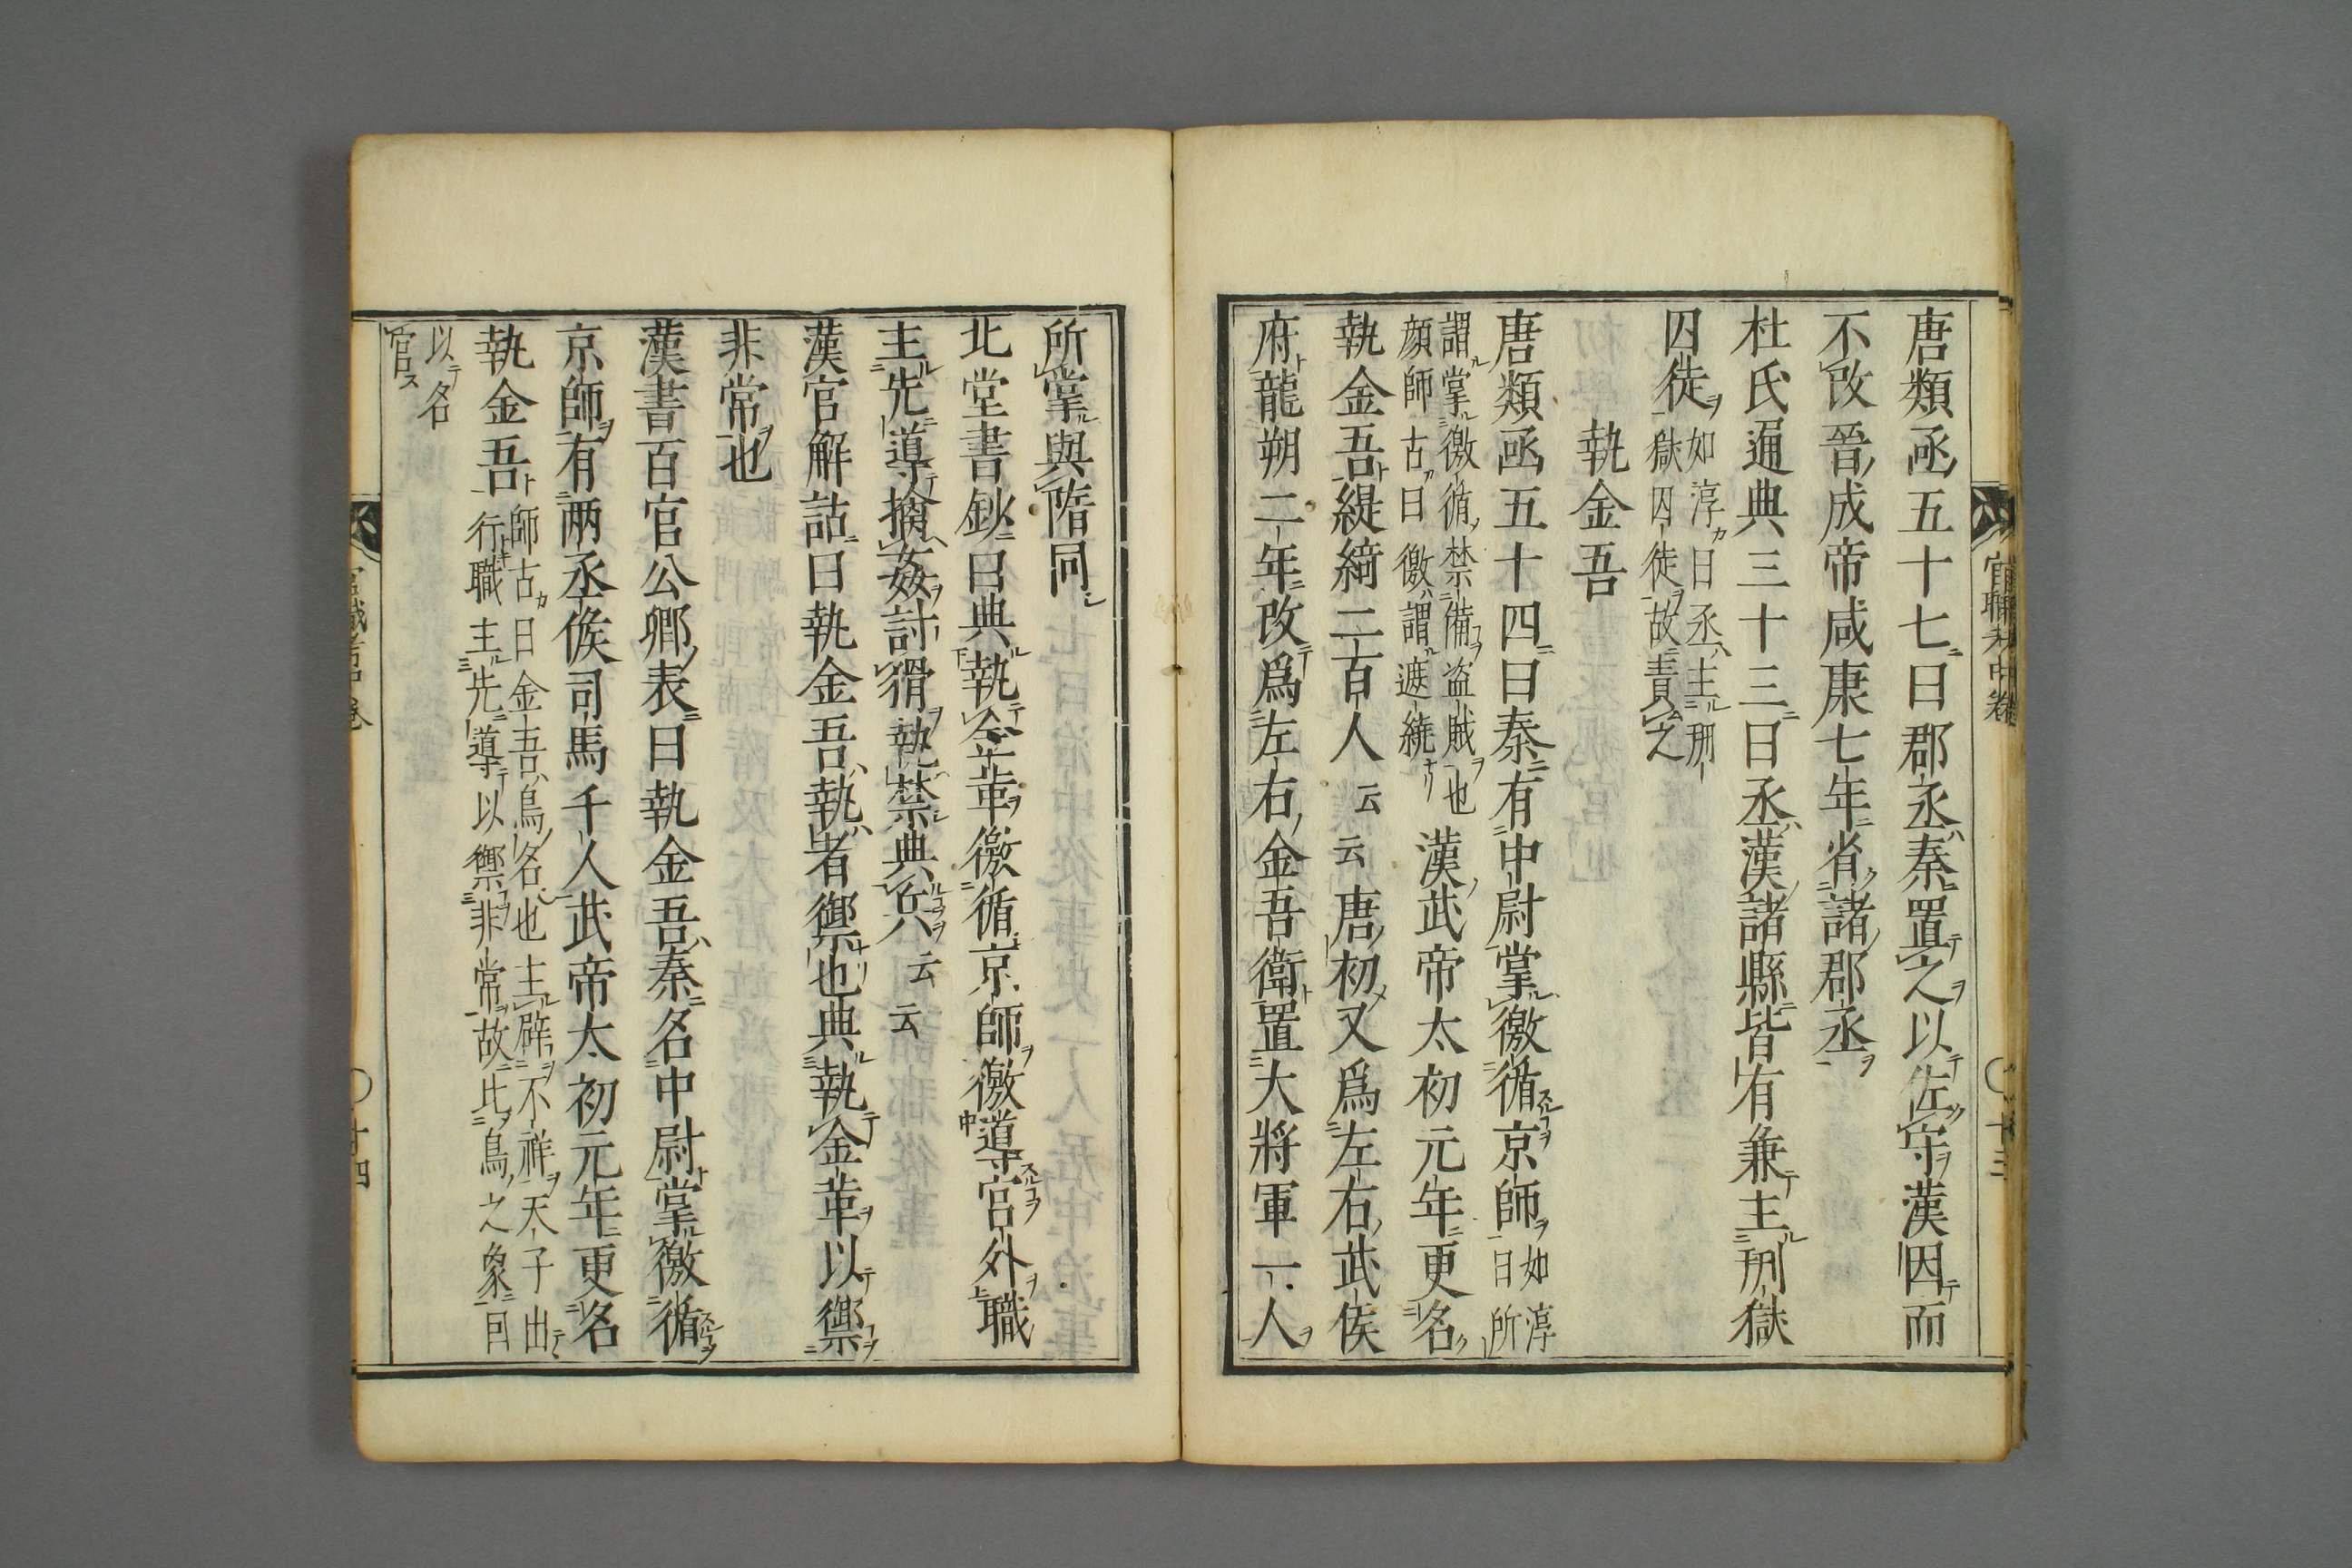 唐類函五十七曰郡丞秦置之以佐守漢因而
不改晉成帝咸康七年省諸郡丞
杜氏通典三十三曰丞漢諸縣皆有兼主刑獄
囚徒如淳曰丞主刑獄囚徒故責之
執金吾
唐類函五十四曰秦有中尉掌徼循京師如淳曰所
謂掌徼循禁備盗賊也顔師古曰徼謂遮繞漢武帝太初元年更名
執金吾緹綺二百人云云唐初又爲左右武侯
府龍朔二年改爲左右金吾衛置大將軍一人
官職考中卷
十三
所掌與隋同
北堂書鈔曰典執金革徼循京師徼導宮外職
主先導擒姦討猾執禁典兵云云
漢官解詁曰執金吾執者禦也典執金革以禦
非常也
漢書百官公卿表曰執金吾秦名中尉掌徼循
京師有兩丞候司馬千人武帝太初元年更名
執金吾師古曰金吾鳥名也主辟不祥天子出行職主先導以禦非常故此鳥之象因
以名官
官職考中卷
十四